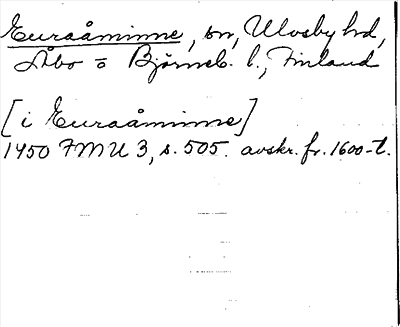 Euraåminne, sn, Ulvsby hd,
Åbo o Björneb. l., Finland
[i Euraåminne]
1450 FMU 3, s. 505. avskr. fr. 1600-t.